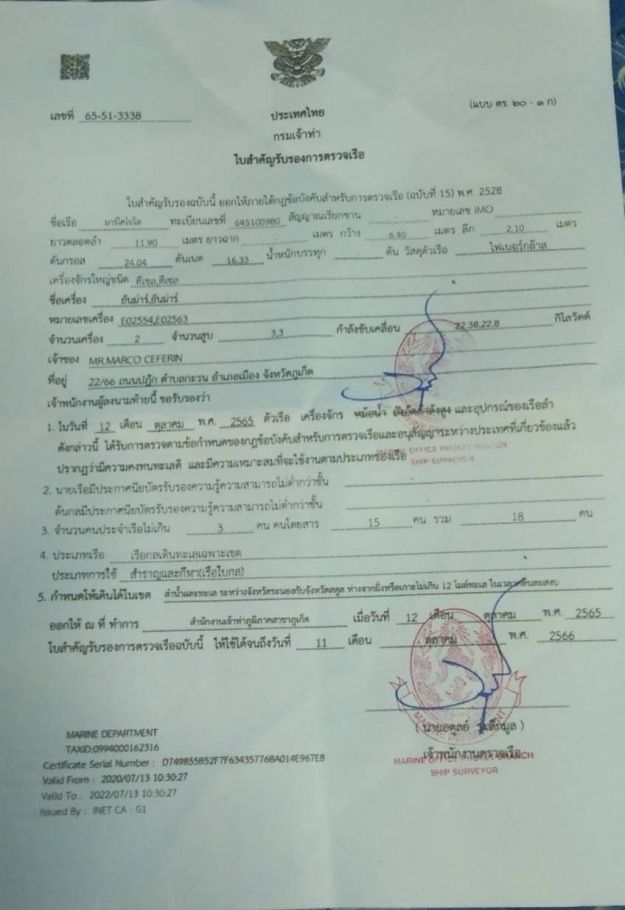 (แบบ ตร. ๒๐ - ๑ ก)
เลขที่ 65-51-3338
ประเทศไทย
กรมเจ้าท่า
ใบสำคัญรับรองการตรวจเรือ
ใบสำคัญรับรองฉบับนี้ ออกให้ภายใต้กฎข้อบังคับสำหรับการตรวจเรือ (ฉบับที่ 15) พ.ศ. 2528
ชื่อเรือ มาร์โคโปโล ทะเบียนเลขที่ 645100980 สัญญาณเรียกขาน - หมายเลข IMO
ยาวตลอดลำ 11.90 เมตร ยาวฉาก - เมตร กว้าง 6.40 เมตร ลึก 2.10 เมตร
ตันกรอส 24.04 ตันเนต 16.33 น้ำหนักบรรทุก ตัน วัสดุตัวเรือ ไฟเบอร์กล๊าส
เครื่องจักรใหญ่ชนิด ดีเซล,ดีเซล
ชื่อเครื่อง ยันม่าร์,ยันม่าร์
หมายเลขเครื่อง E02554,E02563
จำนวนเครื่อง 2 จำนวนสูบ 3,3 กำลังขับเคลื่อน 22.38,22.8 กิโลวัตต์
เจ้าของ MR.MARCO CEFERIN
ที่อยู่ 22/66 ถนนปฏัก ตำบลกะรน อำเภอเมือง จังหวัดภูเก็ต
เจ้าพนักงานผู้ลงนามท้ายนี้ ขอรับรองว่า
1. ในวันที่ 12 เดือน ตุลาคม พ.ศ. 2565 ตัวเรือ เครื่องจักร หม้อน้ำ ถังอัดกำลังสูง และอุปกรณ์ของเรือลำ
ดังกล่าวนี้ ได้รับการตรวจตามข้อกำหนดของกฎข้อบังคับสำหรับการตรวจเรือและอนุสัญญาระหว่างประเทศที่เกี่ยวข้องแล้ว
ปรากฏว่ามีความคงทนทะเลดี และมีความเหมาะสมที่จะใช้งานตามประเภทของเรือ
2. นายเรือมีประกาศนียบัตรรับรองความรู้ความสามารถไม่ต่ำกว่าชั้น
ต้นกลมีประกาศนียบัตรรับรองความรู้ความสามารถไม่ต่ำกว่าชั้น
3. จำนวนคนประจำเรือไม่เกิน 3 คน คนโดยสาร 15 คน รวม 18 คน
4. ประเภทเรือ เรือกลเดินทะเลเฉพาะเขต
ประเภทการใช้ สำราญและกีฬา(เรือใบกล)
5. กำหนดให้เดินได้ในเขต ลำน้ำและทะเล ระหว่างจังหวัดระนองกับจังหวัดสตูล ห่างจากฝั่งหรือเกาะไม่เกิน 12 ไมล์ทะเล ในเวลาคลื่นลมสงบ
ออกให้ ณ ที่ ทำการ สำนักงานเจ้าท่าภูมิภาคสาขาภูเก็ต เมื่อวันที่ 12 เดือน ตุลาคม พ.ศ. 2565
ใบสำคัญรับรองการตรวจเรือฉบับนี้ ให้ใช้ได้จนถึงวันที่ 11 เดือน ตุลาคม พ.ศ. 2566
เจ้าพนักงานตรวจเรือ
MARINE OFFICE PHUKET BRANCH
SHIP SURVEYOR
MARINE DEPARTMENT
TAXID:0994000162316
Certificate Serial Number : D749855B52F7F63435776BA014E967E8
Valid From : 2020/07/13 10:30:27
Valid To : 2022/07/13 10:30:27
Issued By : INET CA - G1